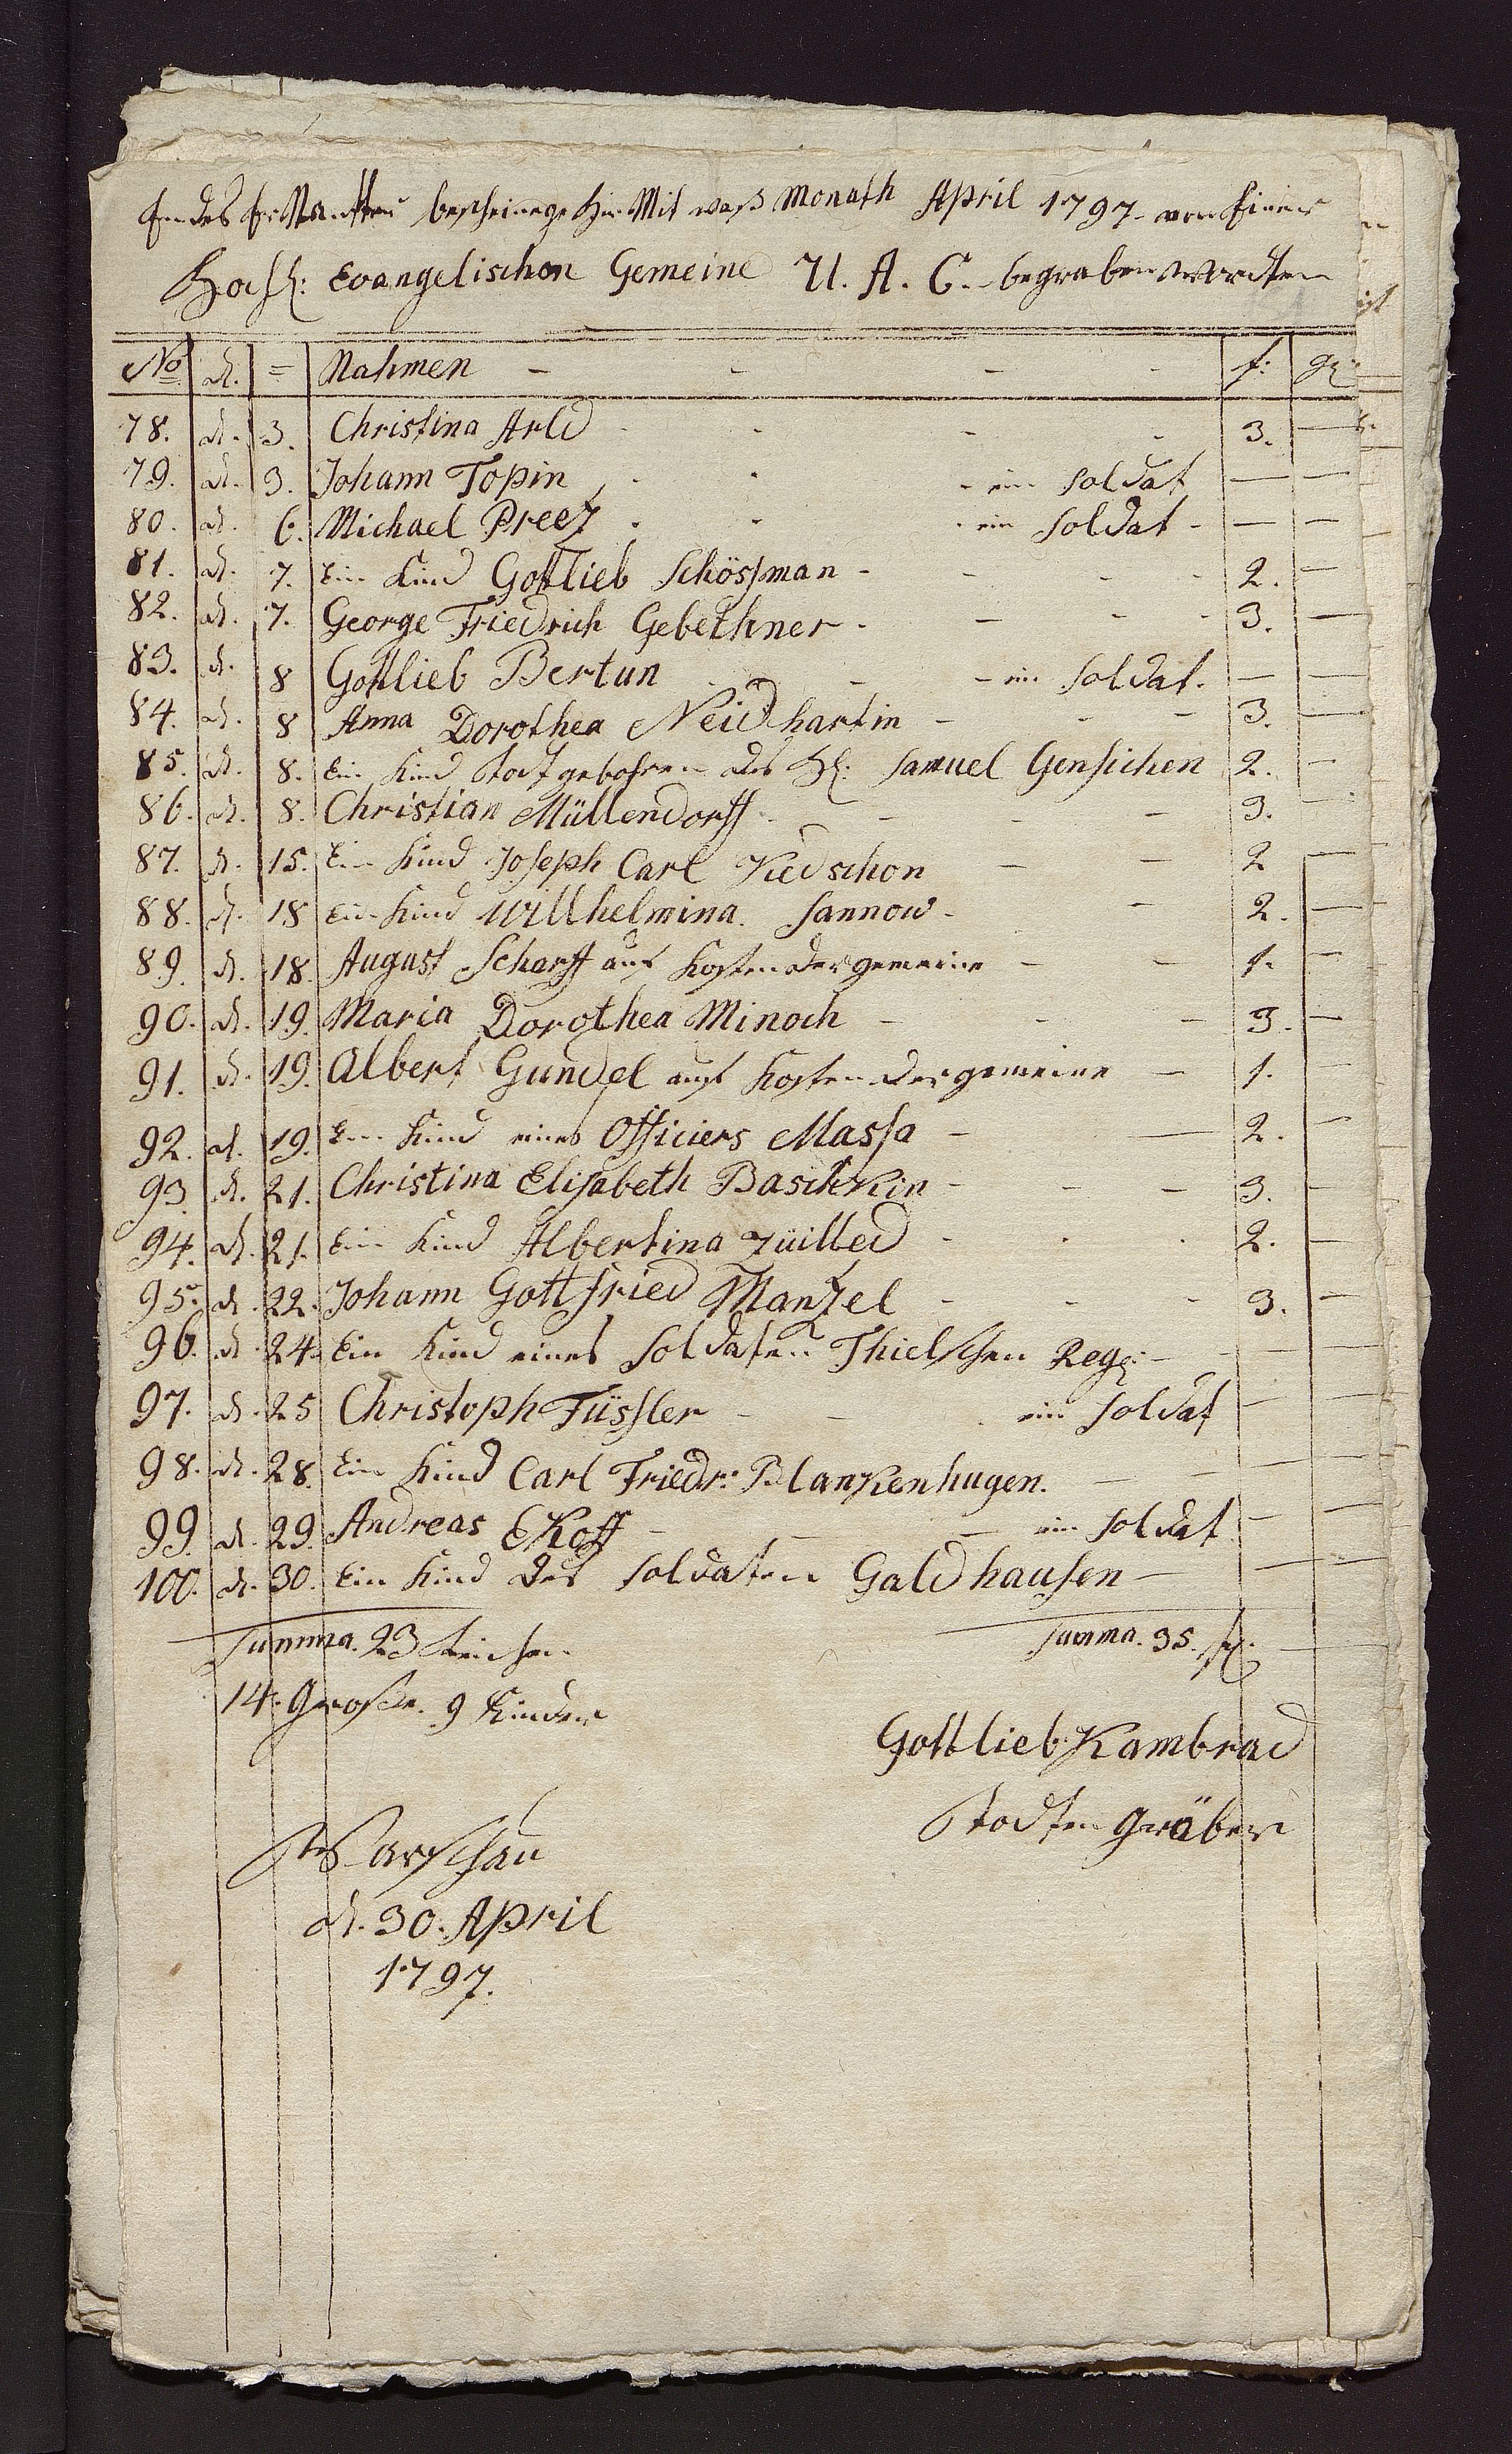 bescheinege hir Mit was Monath April 1797. von Einer
Hochl: Evangelischen Gemeine U. A. C. begraben worden
No d. = Nahmen - - - - f: gr:
78. d. 3. Christina Arld - - - - 3. —
79. d. 3. Johann Topin - - - ein Soldat — —
80. d. 6. Michael Preetz - - - ein Soldat - — —
81. d. 7. Ein Kind Gottlieb Schössman - - - - 2. —
82. d. 7. George Friedrich Gebethner - - - - 3. —
83. d. 8 Gottlieb Bertun - - - ein Soldat. — —
84. d. 8 Anna Dorothea Neidhartin - - - 3. —
85. d. 8. Ein Kind todt gebohren des H: Samuel Gensichen 2. —
86. d. 8. Christian Müllendorff - - - - 3. -
87. d. 15. Ein Kind Joseph Carl Kiedschon - - 2 —
88. d. 18 Ein Kind Willhelmina. Sannow - - 2. —
89. d. 18. August Scharff auf Kosten der gemeine - - 1. —
90. d. 19. Maria Dorothea Minoch - - - 3. —
91. d. 19. Albert Gundel auf Kosten der gemeine - 1. —
92. d. 19. Ein Kind eines Officiers Massa - — 2. —
93. d. 21. Christina Elisabeth Baschkin - - - 3. —
94. d. 21. Ein Kind Albertina - - - 2. —
95. d. 22. Johann Gottfried Mantzel - - - 3. —
96. d. 24. Ein Kind eines Soldaten Thielschen Reg: - — —
97. d. 25 Christoph Füssler - - - ein Soldat — —
98. d. 28. Ein Kind Carl Friedr: Blankenhugen. — — —
99. d. 29. Andreas Ekoff - - - ein Soldat — —
100. d. 30. Ein Kind des Soldaten Galdhausen - — —
Summa. 23 Leichen. Summa. 35. f:
14. Grosse. 9 Kinder
Gottlieb Kambrad
Todten Gräber
Warschau
d. 30. April
1797.